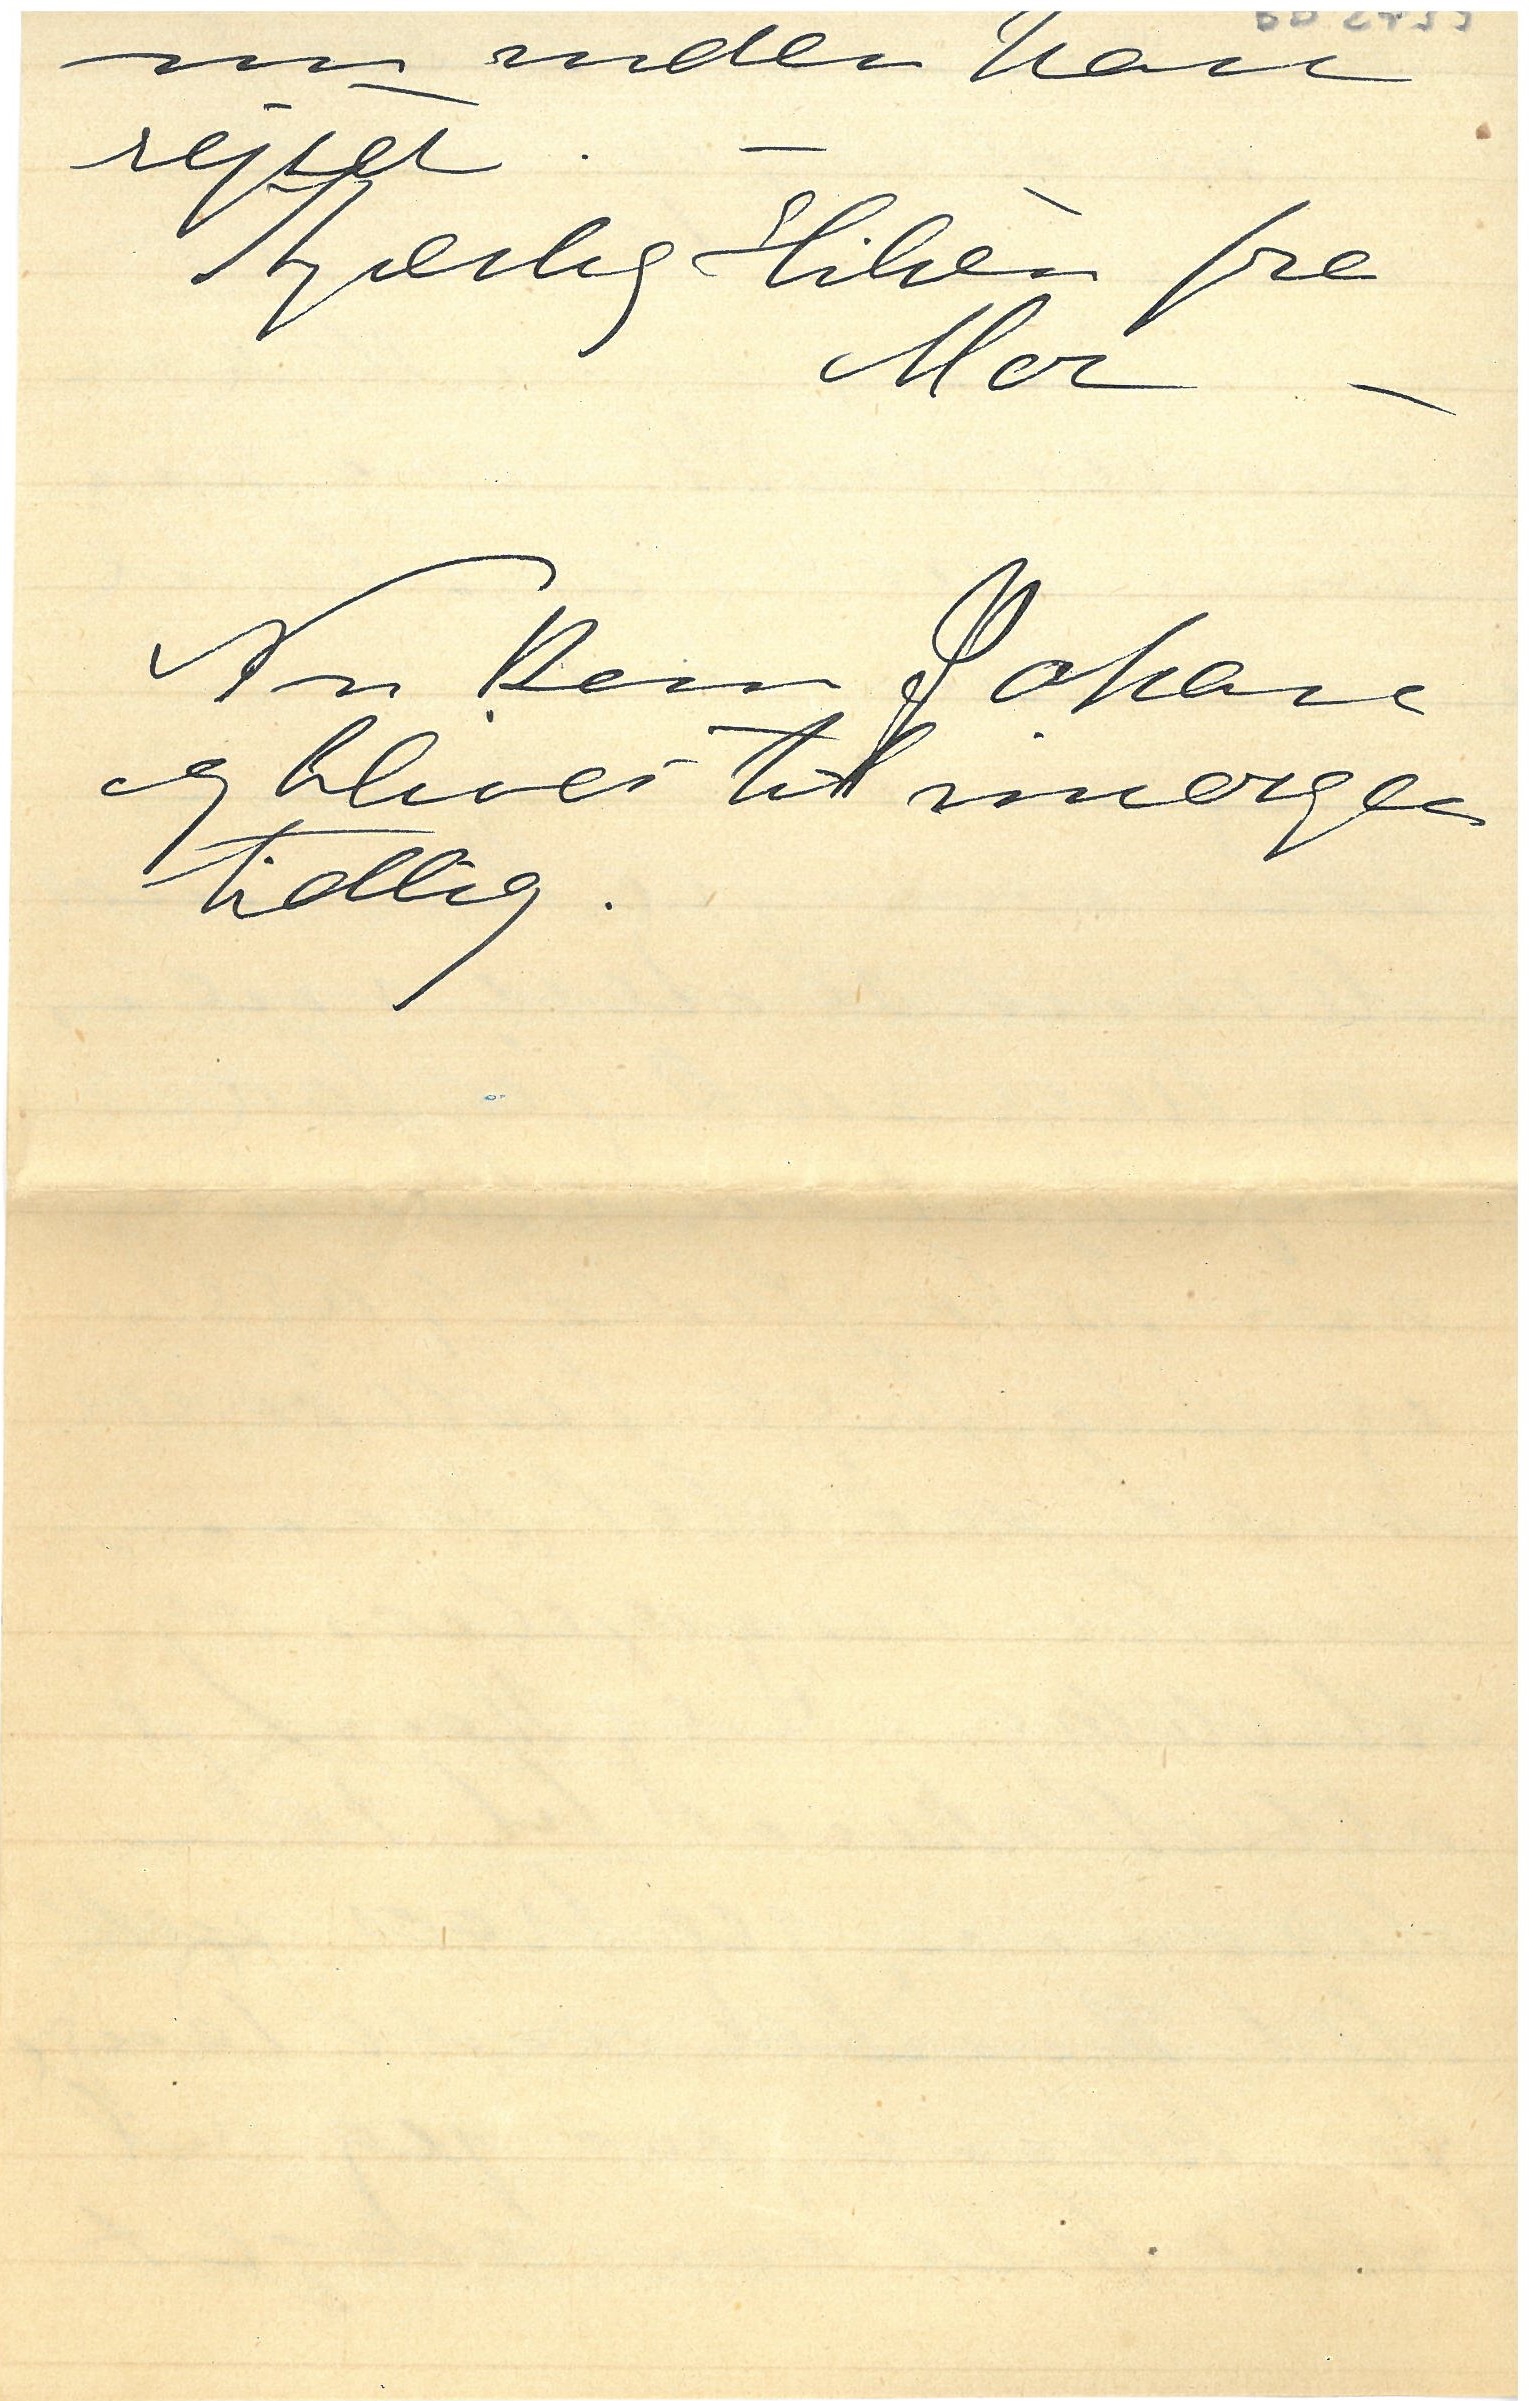 nu inden han
rejser. —
Kjærlig Hilsen fra
Mor —
Nu kom Johan
og bliver til imorgen
tidlig.